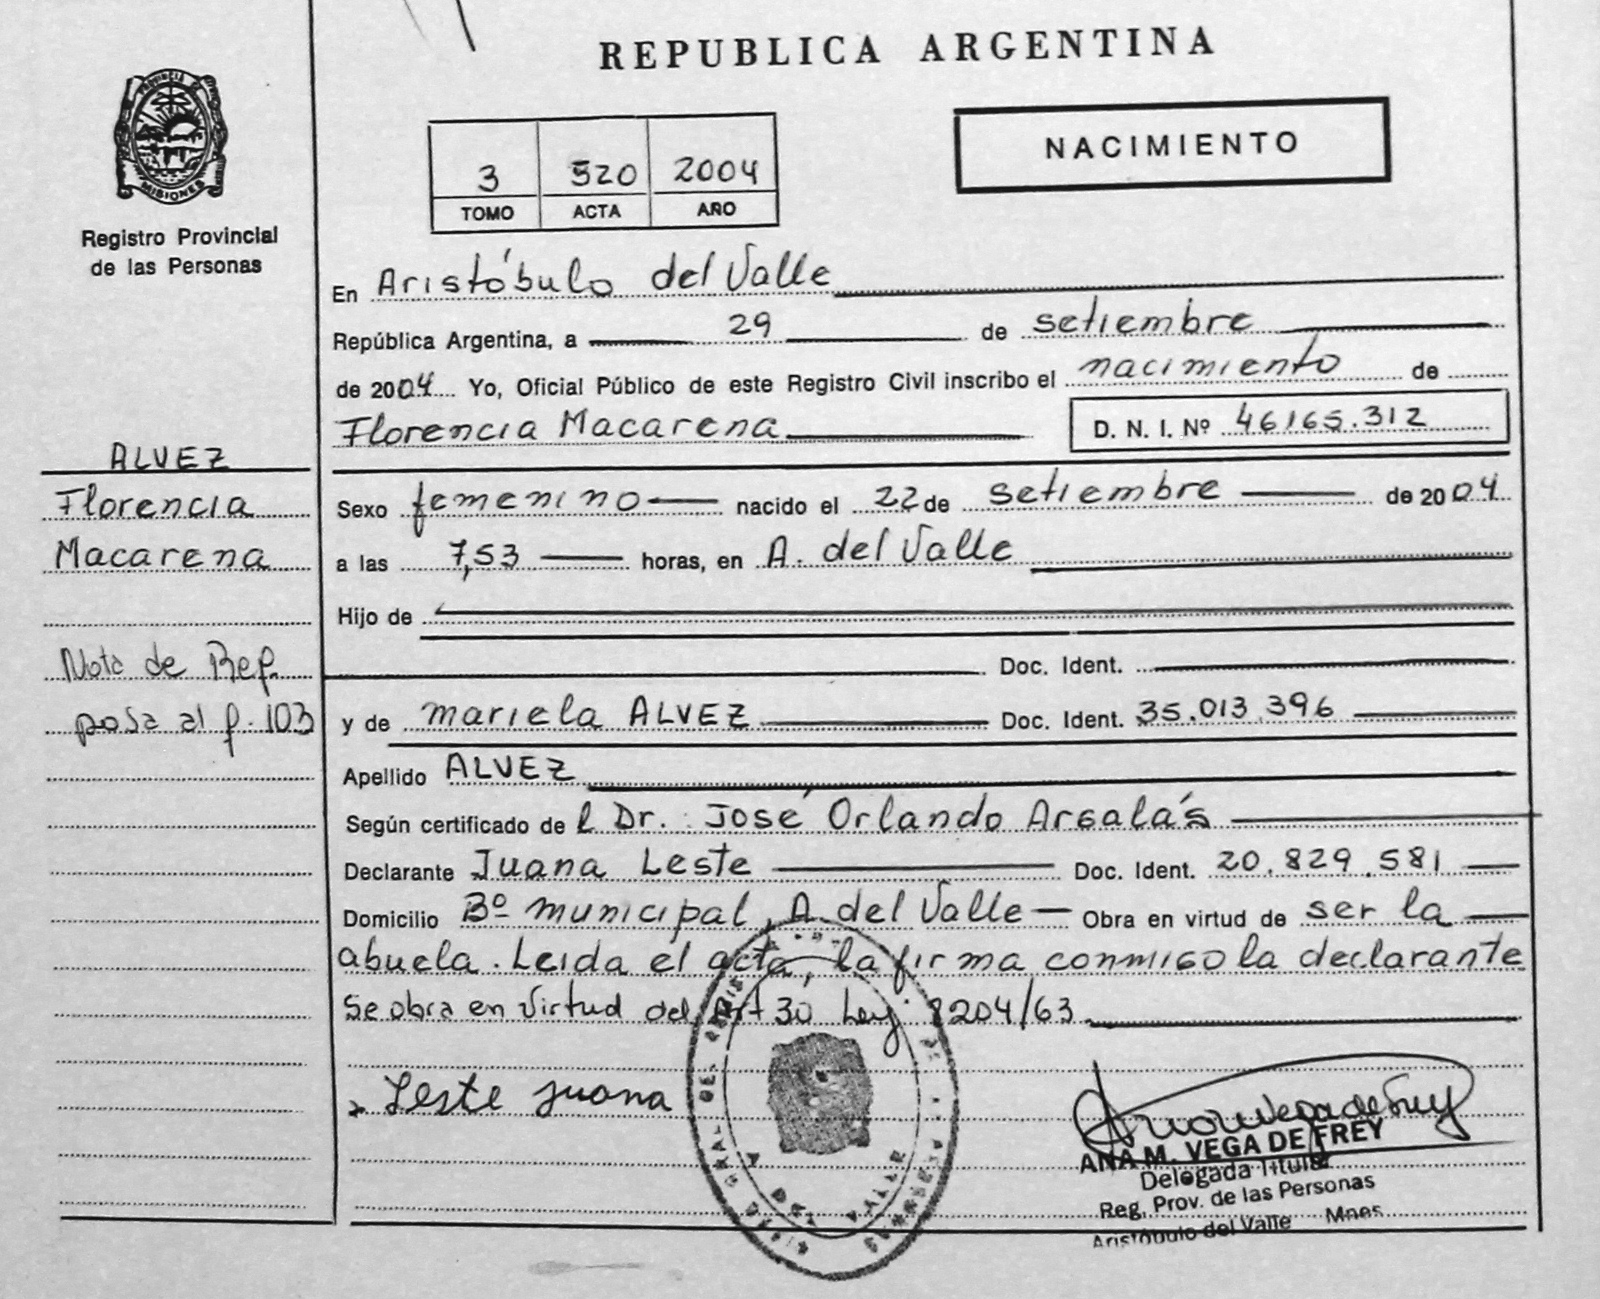 PROVINCIA DE
MISIONES
Registro Provincial
de las Personas
ALVEZ
Florencia
Macarena
Nota de Ref.
pasa al f. 103
REPUBLICA ARGENTINA
3 520 2004
TOMO ACTA AÑO
NACIMIENTO
En Aristóbulo del Valle
República Argentina, a 29 de setiembre
de 2004 Yo, Oficial Público de este Registro Civil inscribo el nacimiento de
Florencia Macarena D. N. I. Nº 46165.312
Sexo femenino nacido el 22 de setiembre de 2004
a las 7,53 horas, en A. del Valle
Hijo de
Doc. Ident.
y de mariela ALVEZ Doc. Ident. 35.013.396
Apellido ALVEZ
Según certificado de l Dr. José Orlando Arsalás
Declarante Juana Leste Doc. Ident. 20.829.581
Domicilio Bº municipal, A. del Valle Obra en virtud de ser la
abuela. Leida el acta, la firma conmigo la declarante
Se obra en virtud del Art 30 Ley 8204/63
Leste Juana
ANA M. VEGA DE FREY
Delegada Titular
Reg. Prov. de las Personas
Aristóbulo del Valle Mnes